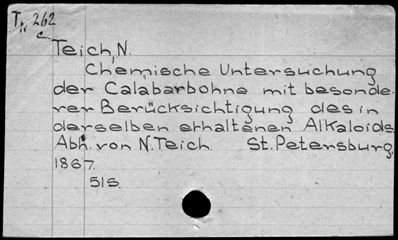 Tк 262
c
Teich, N.
Chemische Untersuchung
der Calabarbohne mit besonde-
rer Berücksichtigung des in
derselben erhaltenen Alkaloids
Abh. von N. Teich. St. Petersburg.
1867.
51S.